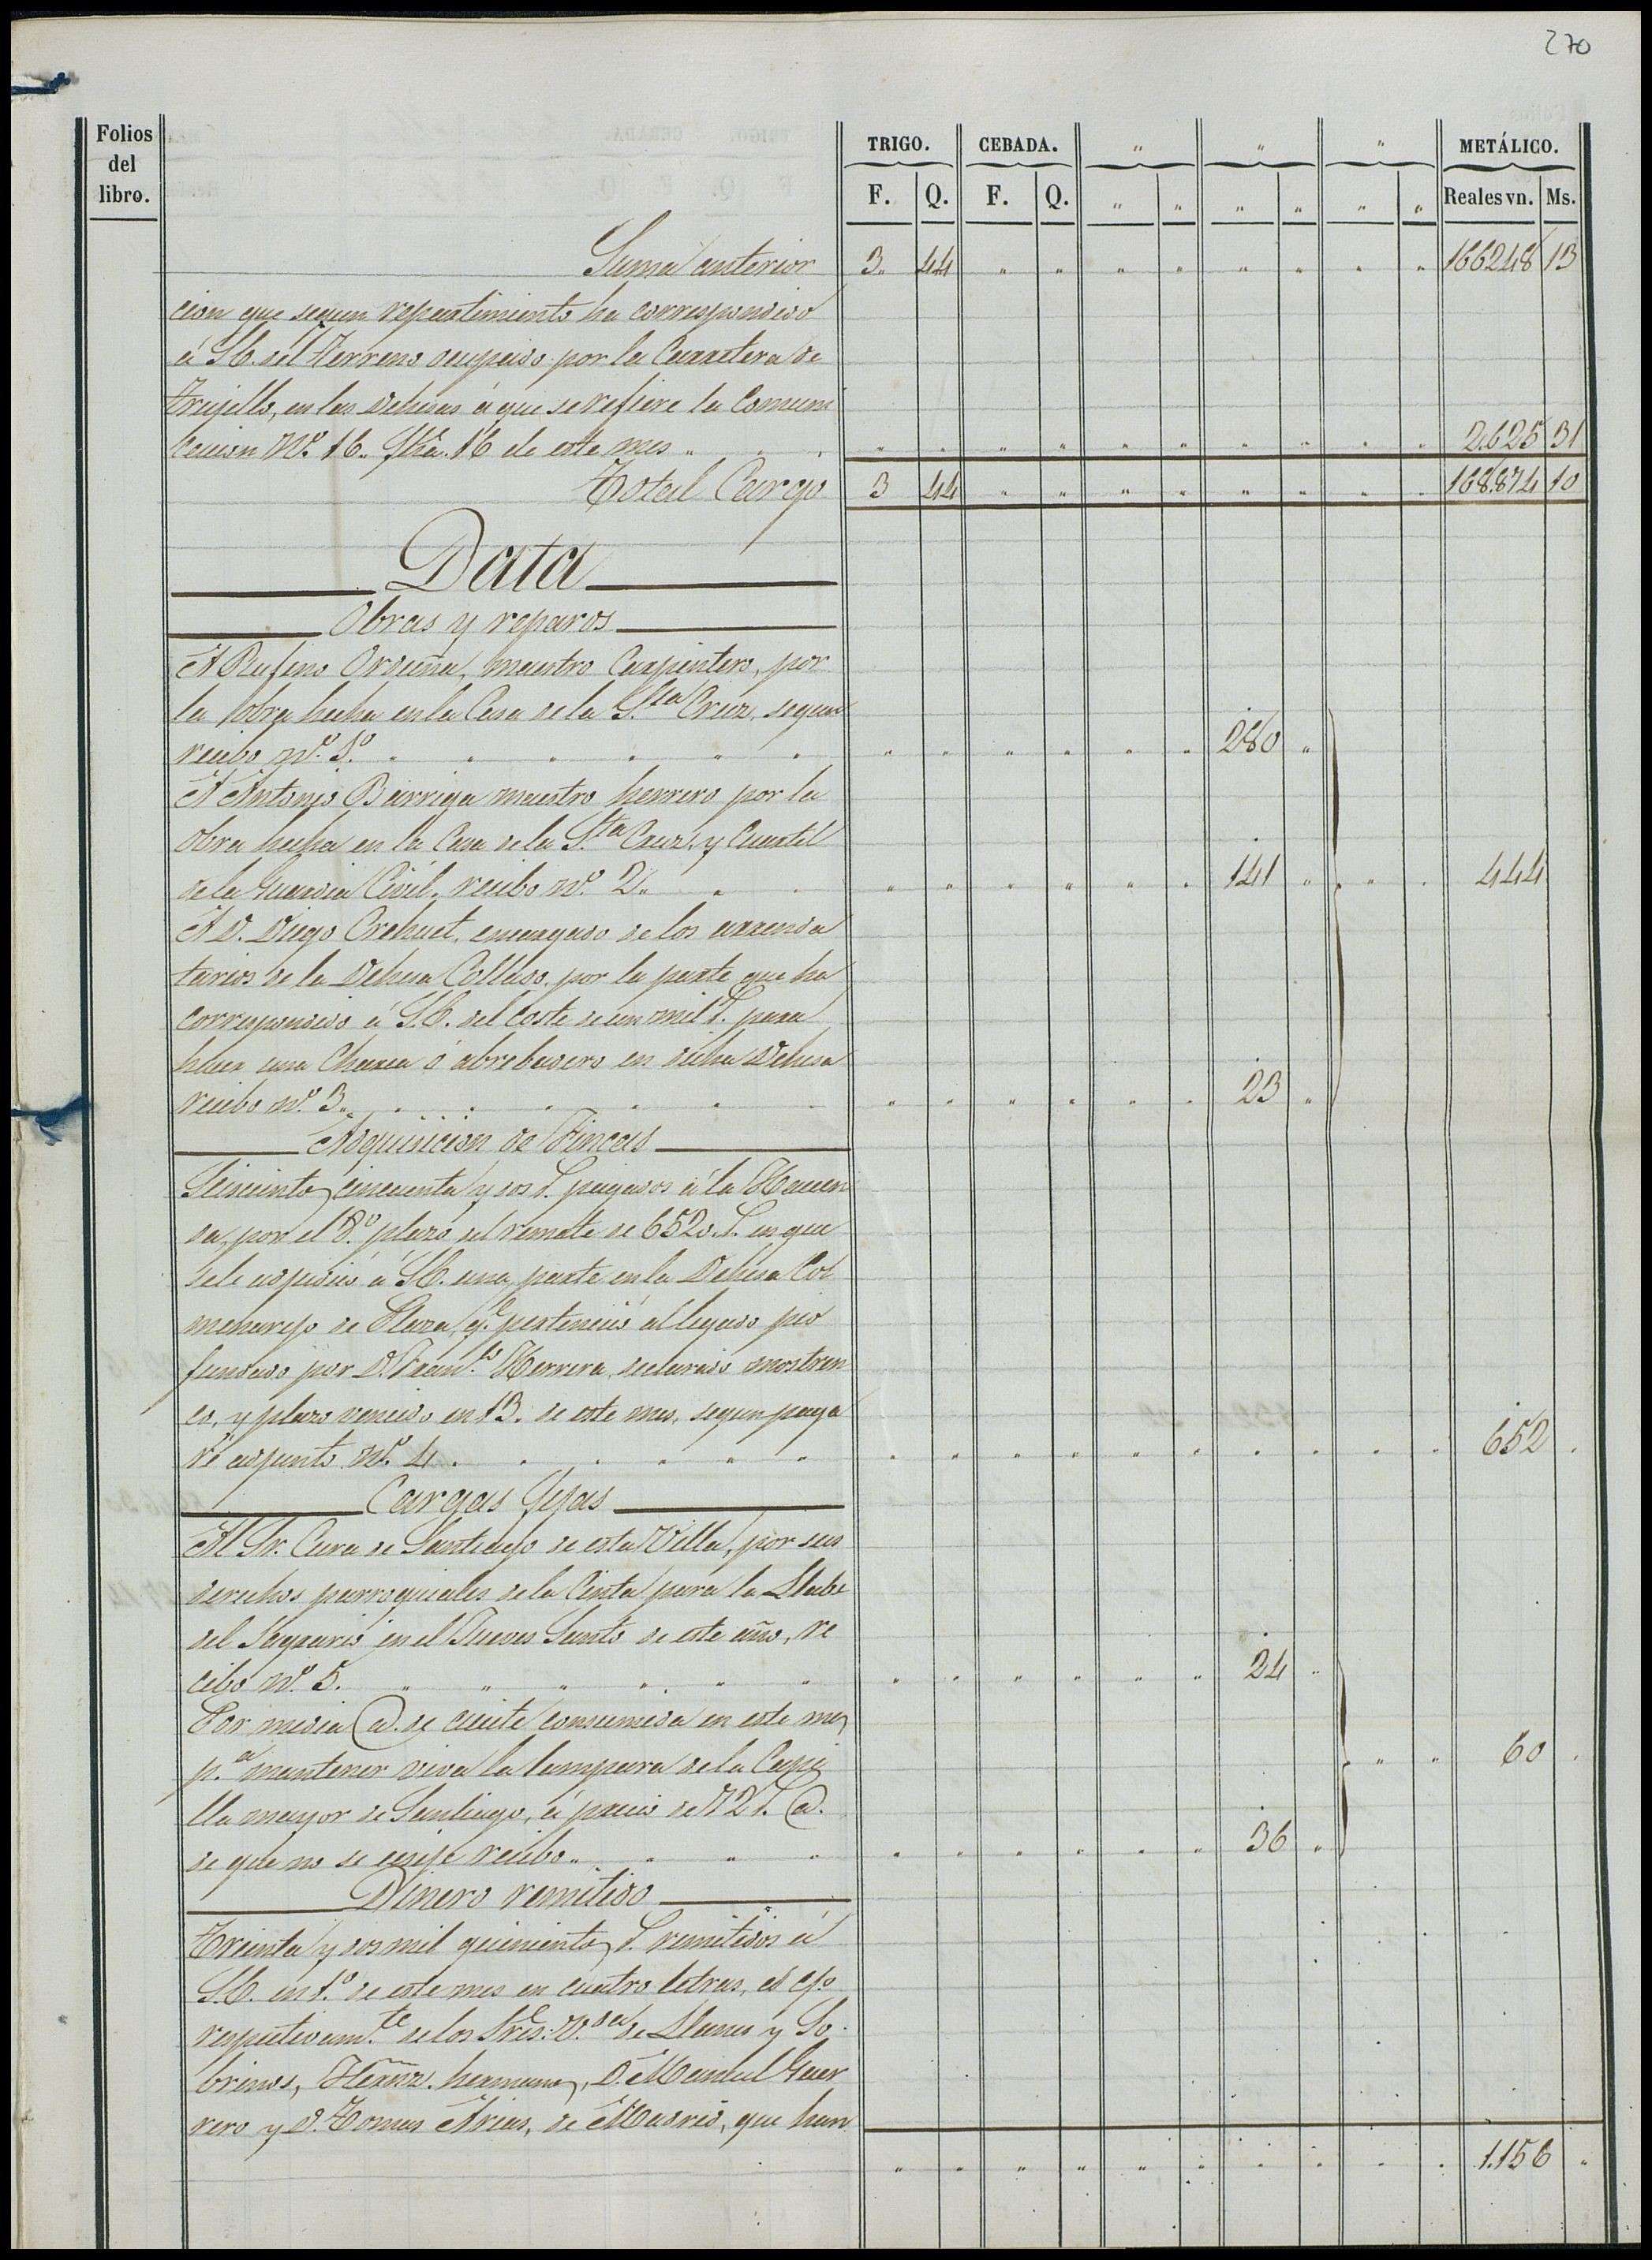 270
Folios del libro.
TRIGO. CEBADA. " " " METÁLICO.
F. Q. F. Q. " " " " " " Reales vn. Ms.
Suma anterior 3 " 44 " " " " " " " " 166248 13
cion que segun repartimiento ha correspondido
á S.E. del terreno ocupado por la Carretera de
Trujillo, en las dehesas á que se refiere la Comuni
cacion Nº. 16. fha. 16 de este mes " " " " " " " " " 2.625 31
Total Cargo 3 44 " " " " " " " " 168.874 10
Data
Obras y reparos
A Rufino Orduña, maestro Carpintero, por
la obra hecha en la Casa de la S.ta Cruz, segun
recibo nº. 1º. " " " " " " 280 "
A Antonio Barriga maestro herrero por la
obra hecha en la Casa de la S.ta Cruz, y Cuartel
de la Guardia Civil, recibo nº. 2. " " " " " " 141 " " " 444
A D. Diego Crehuet, encargado de los arrenda
tarios de la Dehesa Collado, por la parte que ha
correspondido á S.E. del coste de un mil r. para
hacer una Charca ó abrebadero en dicha Dehesa
recibo nº. 3. " " " " " " 23 "
Adquisicion de Fincas
Seiscientos cincuenta y dos r. pagados á la Hacien
da, por el 8º. plazo del remate de 6520 r. en que
se le adjudicó á S.E. una parte en la Dehesa Col
menarejo de Plaza, q.e perteneció al legado pio
fundado por D. Fran.co Herrera, declarado mostren
co, y plazo vencido en 13. de este mes, segun paga
ré adjunto nº. 4 " " " " " " " " " " 652 "
Cargas fijas
Al Sr. Cura de Santiago de esta Villa, por sus
derechos parroquiales de la Cinta para la Llabe
del Sagrario en el Jueves Santo de este año, re
cibo nº. 5. " " " " " " 24 "
Por media @. de aceite consumida en este mes
p.a mantener viva la lampara de la Capi " " 60 "
lla mayor de Santiago, á precio de 72 r. @.
de que no se exije recibo " " " " " " 36 "
Dinero remitido
Treinta y dos mil quinientos r. remitidos á
S.E. en 1º. de este mes en cuatro letras, á c/º
respectivam.te de los Sres. V.da de Llanes y So
brinos, Hernz. hermanos, D. Manuel Guer
rero y D. Tomas Arias, de Madrid, que han
" " " " " " " " " " 1.156 "